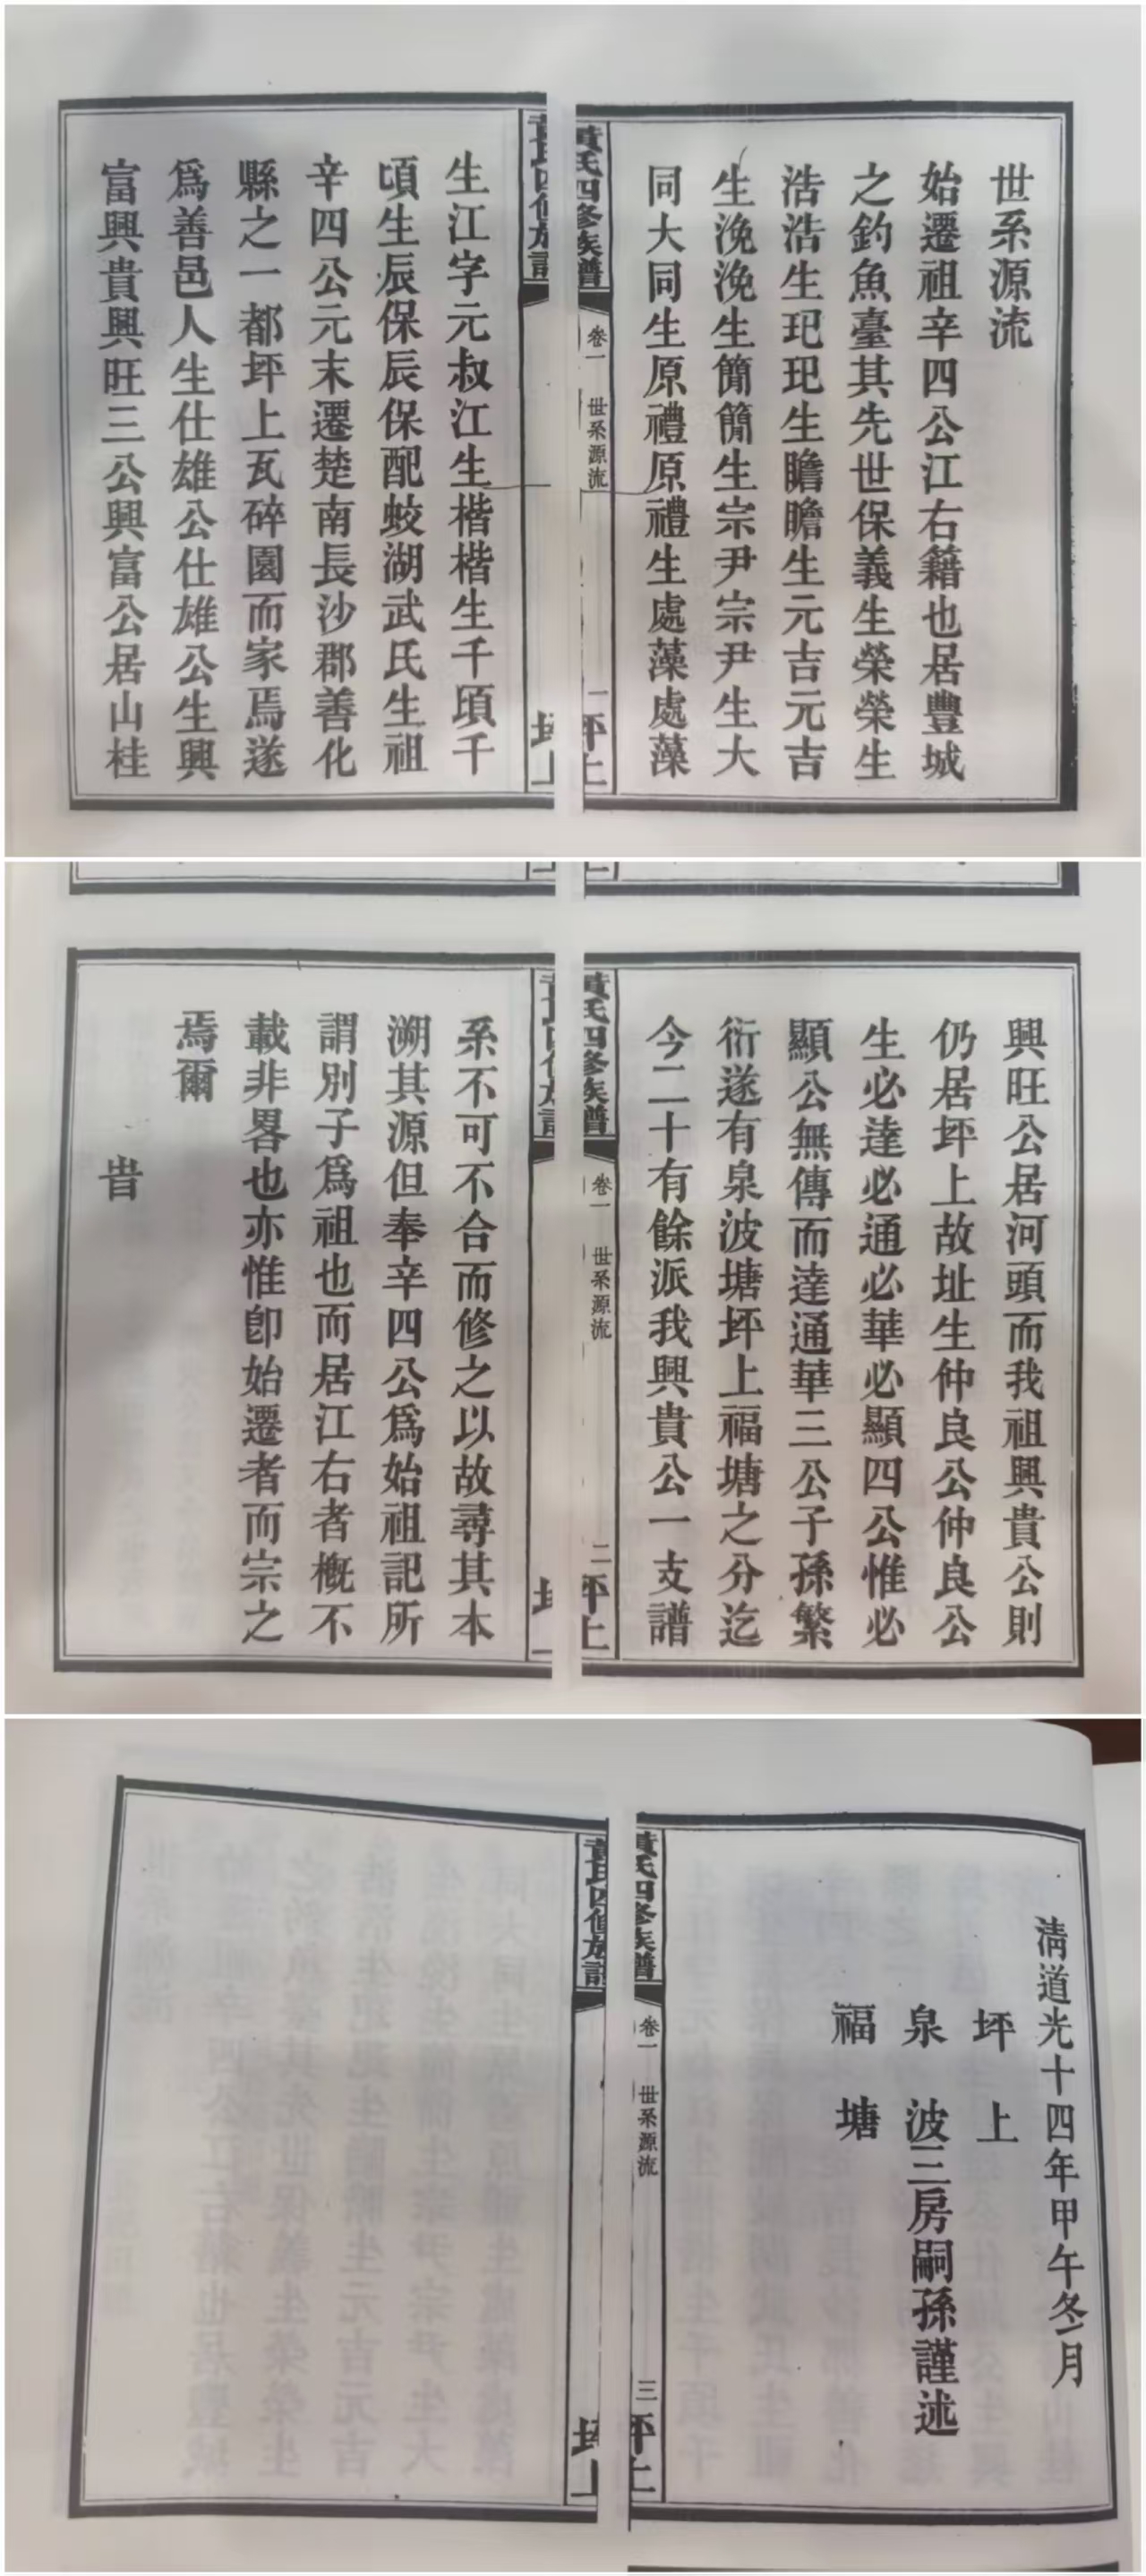 世系源流
始遷祖辛四公江右籍也居豐城
之釣魚臺其先世保義生榮榮生
浩浩生玘玘生瞻瞻生元吉元吉
生浼浼生簡簡生宗尹宗尹生大
同大同生原禮原禮生處藻處藻
黃氏四修族譜
卷一
世系源流
一
坪上
生江字元叔江生楷楷生千頃千
頃生辰保辰保配蛟湖武氏生祖
辛四公元末遷楚南長沙郡善化
縣之一都坪上瓦碎園而家焉遂
爲善邑人生仕雄公仕雄公生興
富興貴興旺三公興富公居山桂
興旺公居河頭而我祖興貴公則
仍居坪上故址生仲良公仲良公
生必達必通必華必顯四公惟必
顯公無傳而達通華三公子孫繁
衍遂有泉波塘坪上福塘之分迄
今二十有餘派我興貴公一支譜
黃氏四修族譜
卷一
世系源流
二
坪上
系不可不合而修之以故尋其本
溯其源但奉辛四公爲始祖記所
謂別子爲祖也而居江右者概不
載非畧也亦惟卽始遷者而宗之
焉爾
旹
清道光十四年甲午冬月
坪上
泉波三房嗣孫謹述
福塘
黃氏四修族譜
卷一
世系源流
三
坪上